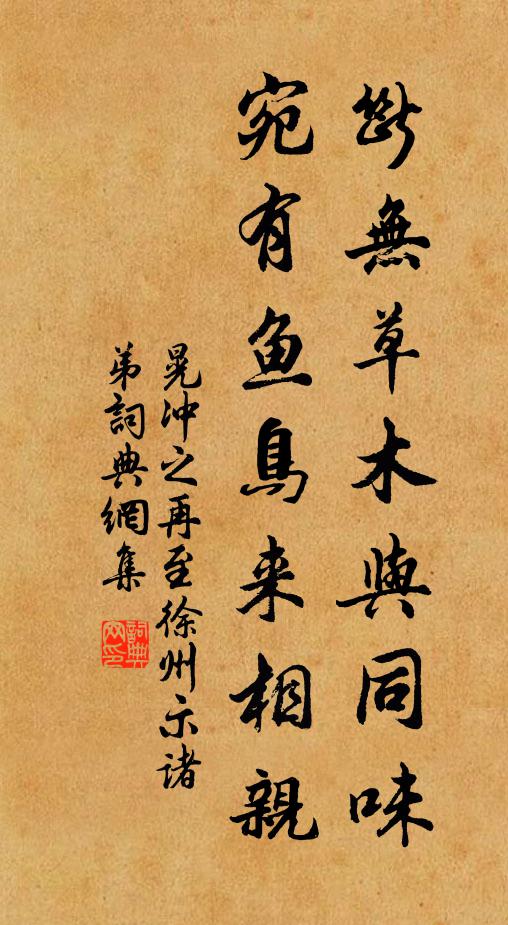 斷無草木與同味
宛有鱼鳥来相親
晁冲之再至徐州示諸
弟詞典網集
詞典网印